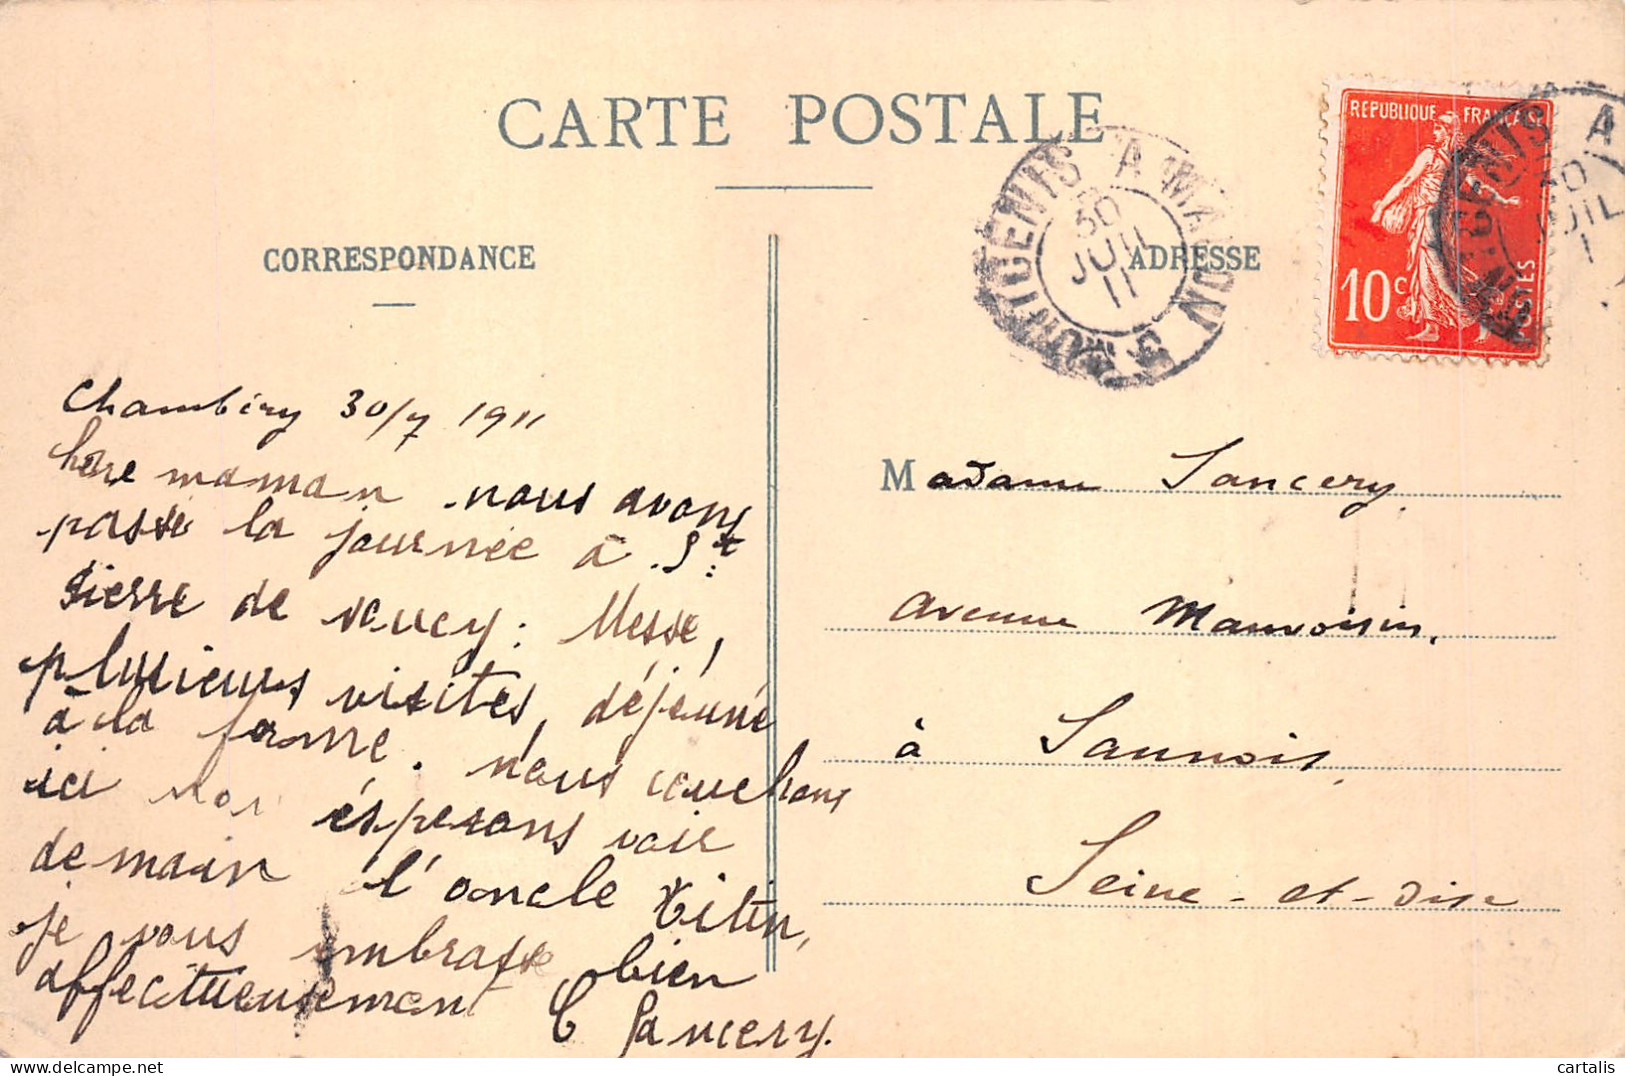 CARTE POSTALE
CORRESPONDANCE
ADRESSE
REPUBLIQUE FRANÇAISE
10c
POSTES
MONT-CENIS A MACON
30
JUIL
11
CENIS A
30
JUIL
Chambéry 30/7 1911
chère maman nous avons
passé la journée à St
Pierre de : Messe,
plusieurs visites, déjeuné
à la ferme. nous couchons
ici nous espérons voir
demain l'oncle Titin,
je vous embrasse bien
affectueusement C Sancery.
Madame Sancery,
avenue Mauvoisin,
à Sannois,
Seine-et-Oise
cartalis